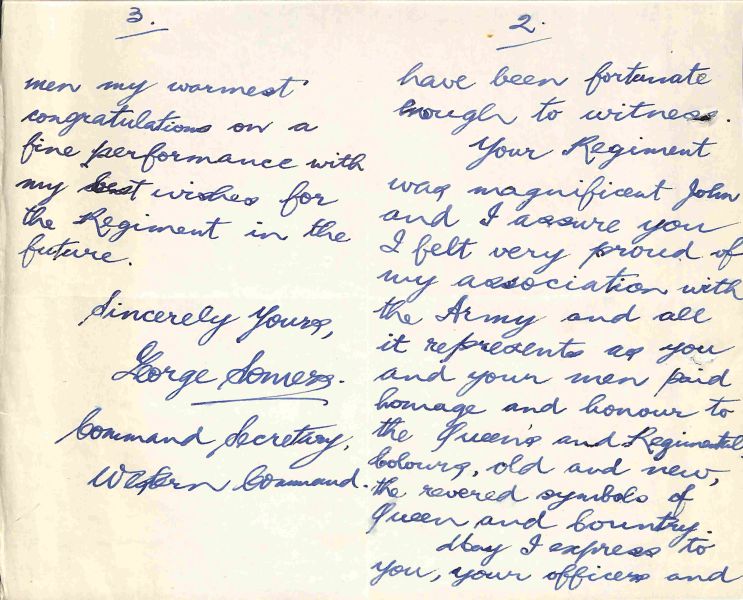 2.
have been fortunate
enough to witness.
Your Regiment
was magnificent John
and I assure you
I felt very proud of
my association with
the Army and all
it represents as you
and your men paid
homage and honour to
the Queen's and Regimental
Colours, old and new,
the revered symbols of
Queen and Country.
May I express to
you, your officers and
3.
men my warmest
congratulations on a
fine performance with
my best wishes for
the Regiment in the
future.
Sincerely Yours,
George Somers.
Command Secretary,
Western Command.